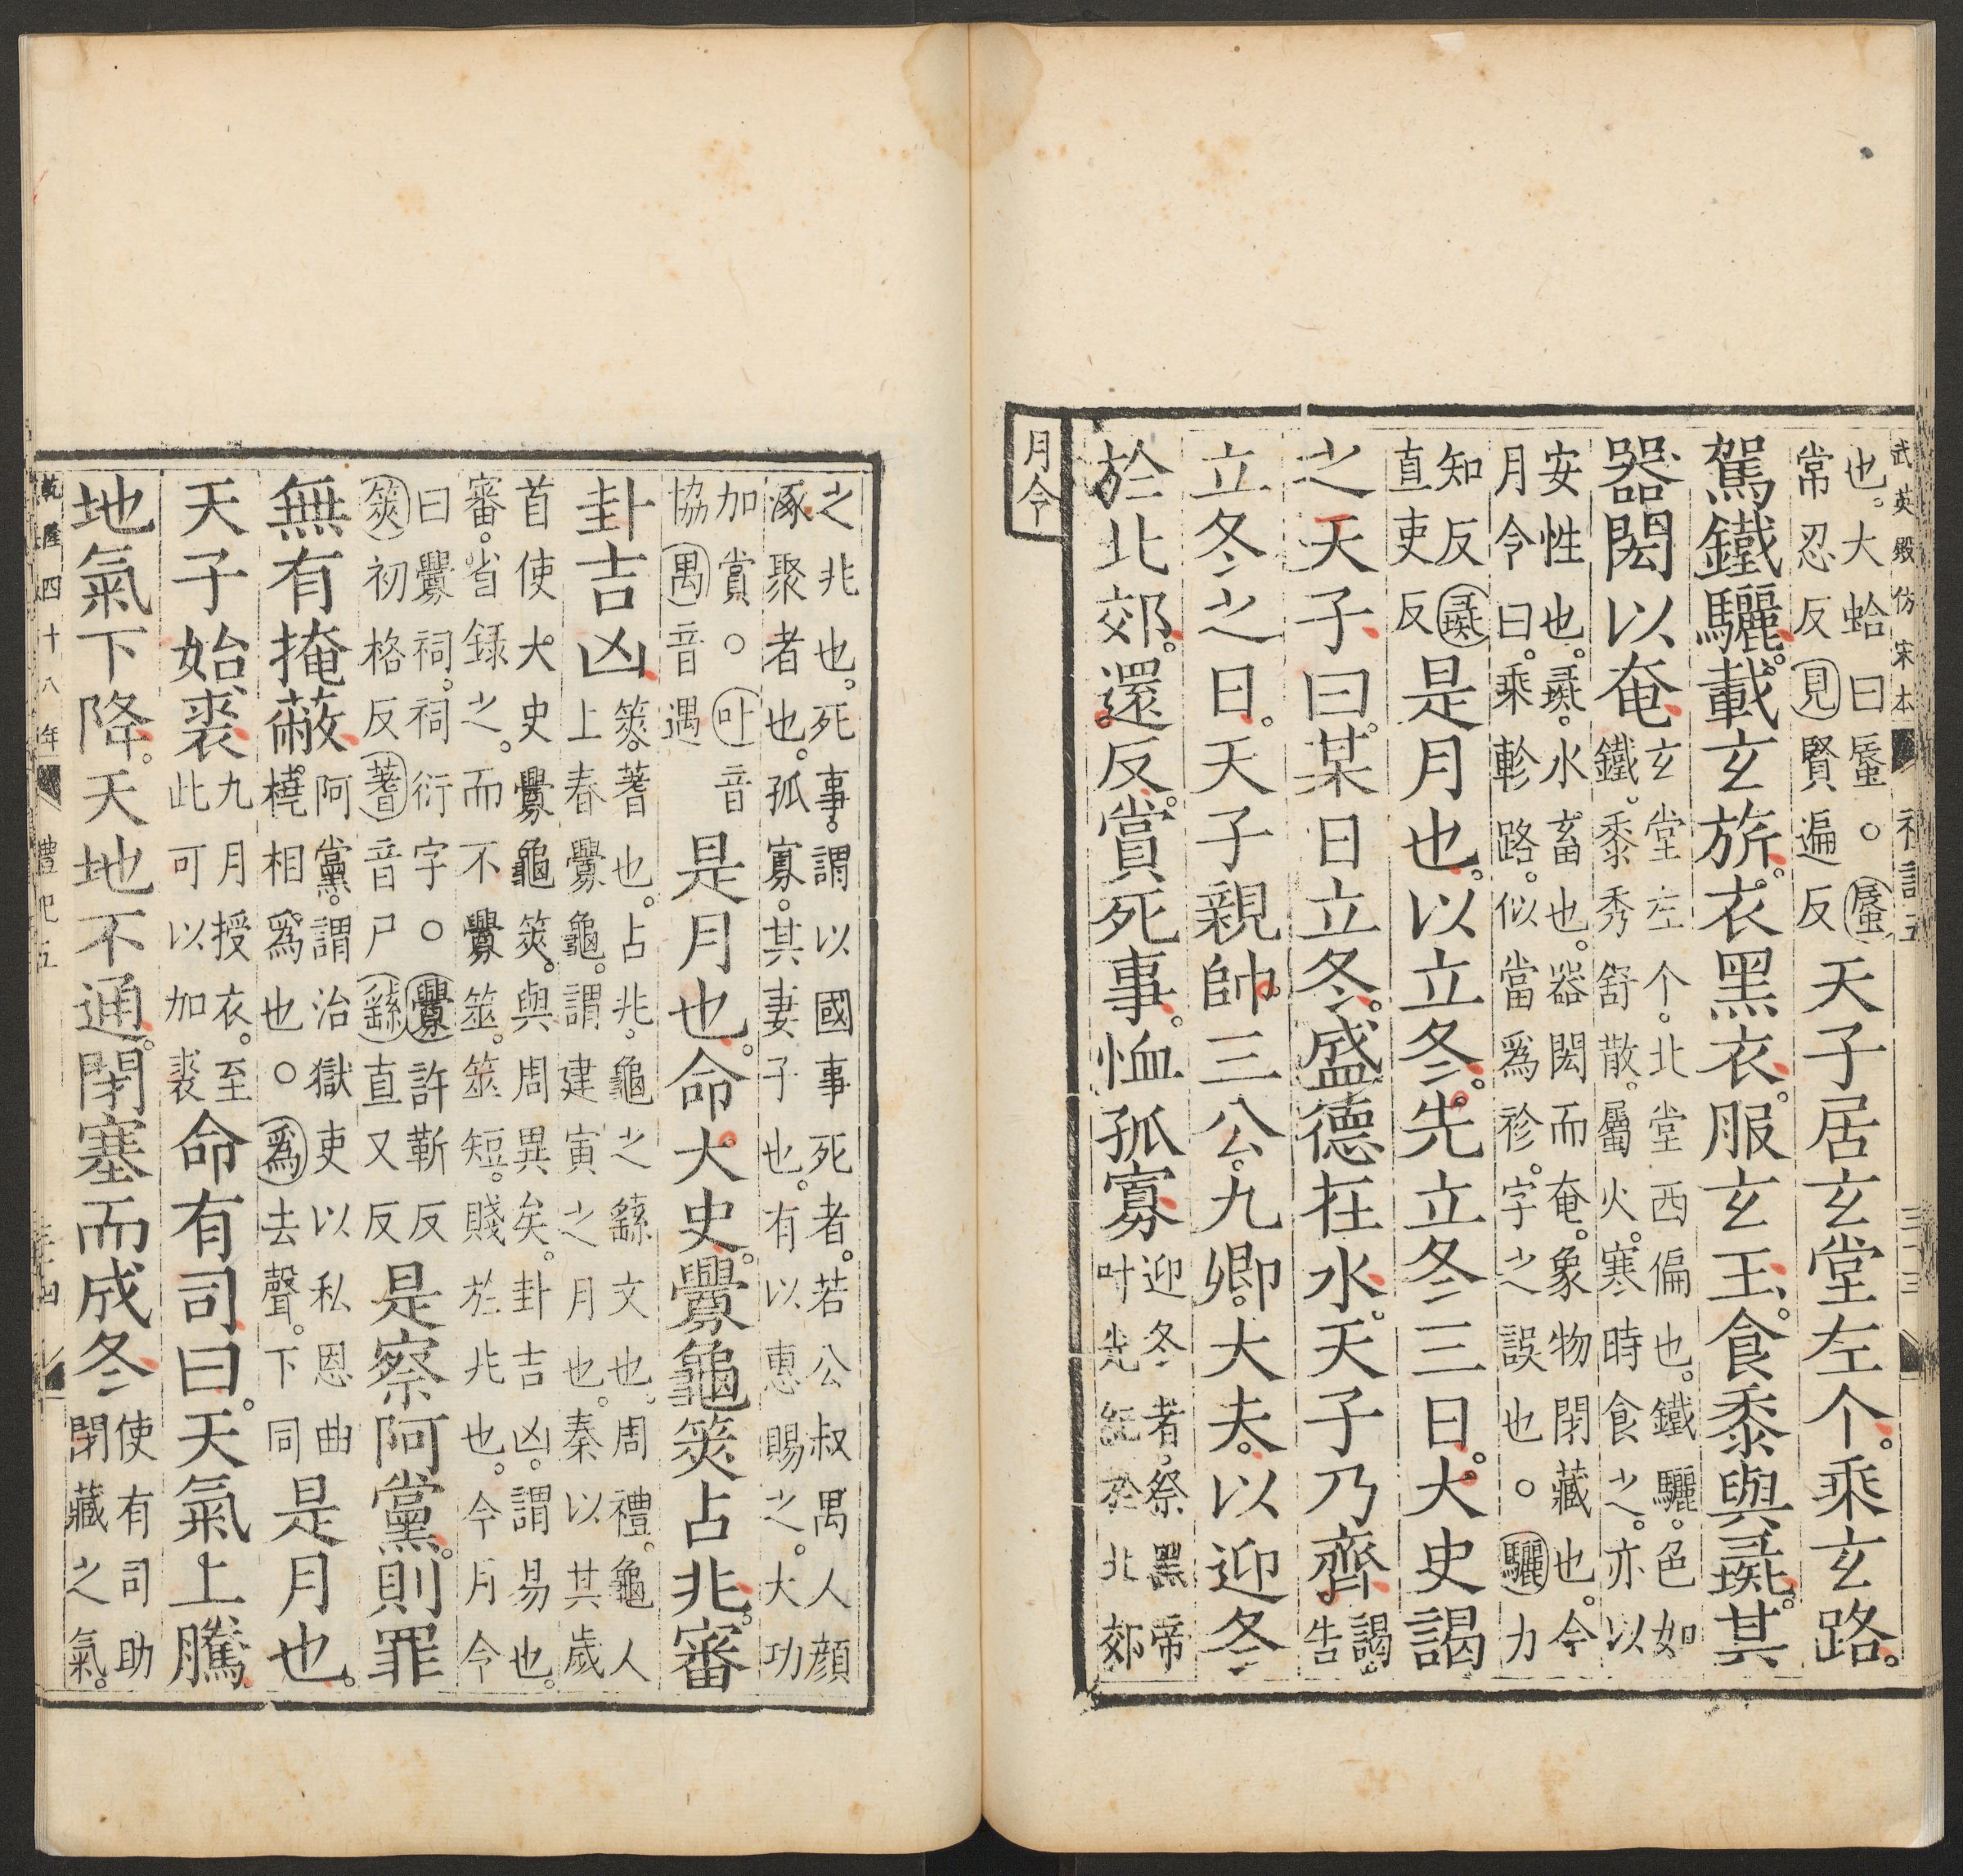 武英殿仿宋本 禮記五 三十三
也。大蛤曰蜃。○蜃常忍反見賢遍反天子居玄堂左个。乘玄路。
駕鐵驪。載玄旂。衣黑衣。服玄玉。食黍與彘。其
器閎以奄玄堂左个。北堂西偏也。鐵驪。色如鐵。黍秀舒散。屬火。寒時食之。亦以
安性也。彘。水畜也。器閎而奄。象物閉藏也。今月令曰。乘軫路。似當爲袗。字之誤也。○驪力
知反彘直吏反是月也。以立冬。先立冬三日。大史謁
之天子曰。某日立冬。盛德在水。天子乃齊。謁。告
立冬之日。天子親帥三公。九卿。大夫。以迎冬
於北郊。還反。賞死事。恤孤寡迎冬者。祭黑帝叶光紀於北郊
月令
之兆也。死事。謂以國事死者。若公叔禺人顔涿聚者也。孤寡。其妻子也。有以惠賜之。大功
加賞。○叶音協禺音遇是月也。命大史。釁龜筴占兆。審
卦吉凶筴。蓍也。占兆。龜之繇文也。周禮。龜人上春釁龜。謂建寅之月也。秦以其歲
首使大史釁龜筴。與周異矣。卦吉凶。謂易也。審。省録之。而不釁筮。筮短。賤於兆也。今月令
曰釁祠。祠衍字。○釁許靳反筴初格反蓍音尸繇直又反是察阿黨。則罪
無有掩蔽阿黨。謂治獄吏以私恩曲橈相爲也。○爲去聲。下同是月也。
天子始裘九月授衣。至此可以加裘命有司曰。天氣上騰
地氣下降。天地不通。閉塞而成冬使有司助閉藏之氣。
乾隆四十八年 禮記五 三十四